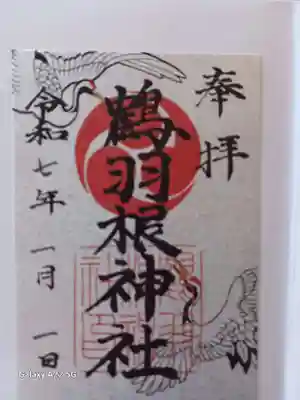 奉拝
鶴羽根神社
令和七年一月一日
Galaxy A22 5G